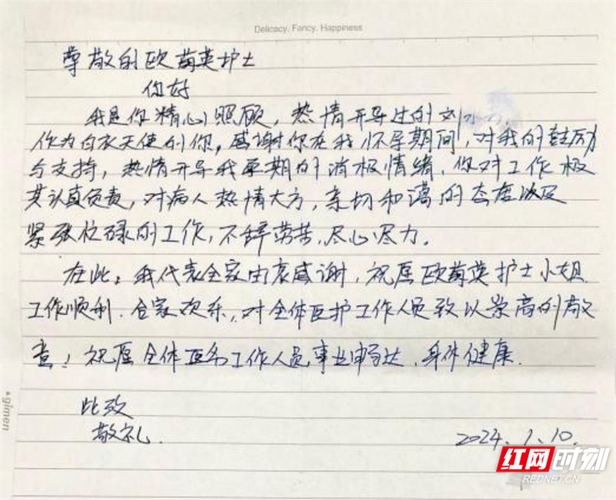 Delicacy, Fancy, Happiness
尊敬的欧菊英护士
你好
我是你精心照顾，热情开导过的刘
作为白衣天使的你，感谢你在我怀孕期间，对我的鼓励
与支持，热情开导我孕期的消极情绪，你对工作极
其认真负责，对病人热情大方，亲切和谒的态度以及
紧张忙碌的工作，不辞劳苦，尽心尽力。
在此：我代表全家由衷感谢，祝愿欧菊英护士小姐
工作顺利．合家欢乐，对全体医护工作人员致以崇高的敬
意！祝愿全体医务工作人员事业畅达，身体健康．
此致
敬礼．
2024．1．10．
gimen
红网时刻
REDNET.CN